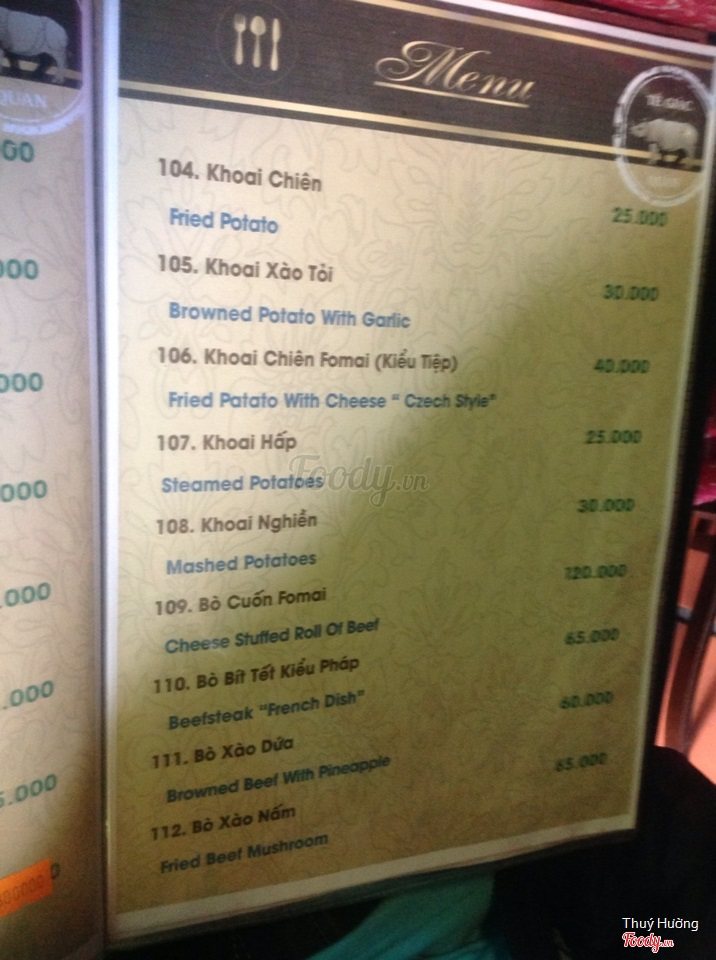 Menu
TÊ GIÁC
QUÁN
104. Khoai Chiên
25.000
Fried Potato
105. Khoai Xào Tỏi
30.000
Browned Potato With Garlic
106. Khoai Chiên Fomai (Kiểu Tiệp)
40.000
Fried Patato With Cheese “ Czech Style”
107. Khoai Hấp
25.000
Steamed Potatoes
108. Khoai Nghiền
30.000
Mashed Potatoes
109. Bò Cuốn Fomai
120.000
Cheese Stuffed Roll Of Beef
110. Bò Bít Tết Kiểu Pháp
65.000
Beefsteak “French Dish”
111. Bò Xào Dứa
60.000
Browned Beef With Pineapple
112. Bò Xào Nấm
65.000
Fried Beef Mushroom
Foody.vn
Thuý Hường
Foody.vn